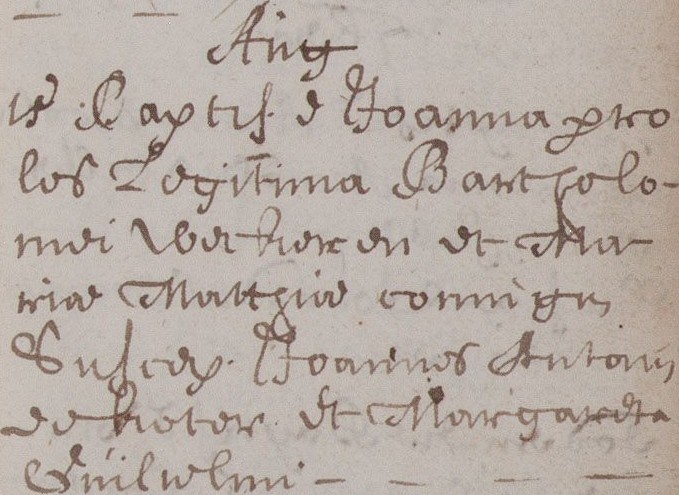 Aug
18 Baptis. e Joanna pro
les Legitima Bartholo-
mei Werkeren et Ma
riae Matthiae connigen
Suscep. Joannes Antonii
de koter et Margareta
Guilielmi